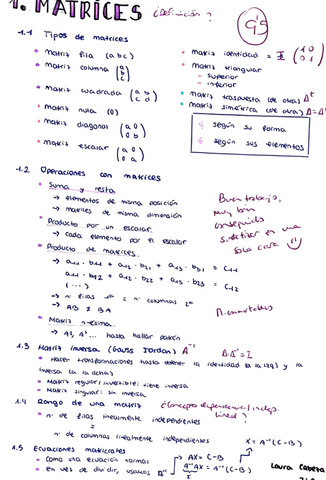 1. MATRICES ¿Definición?
9'5
1.1 Tipos de matrices
• Matriz fila (a b c)
• Matriz columna (a b c)
• Matriz cuadrada (a b c d)
• Matriz nula (0)
• Matriz diagonal (a 0 0 b)
• Matriz escalar (a 0 0 a)
• Matriz identidad = I (1 0 0 1)
• Matriz triangular
- Superior
- inferior
• Matriz traspuesta (de otra) Aᵗ
• Matriz simétrica (de otra) A = Aᵗ
según su forma
según sus elementos
1.2 Operaciones con matrices
• Suma y resta
→ elementos de misma posición
→ matrices de misma dimensión
• Producto por un escalar
→ cada elemento por el escalar
• Producto de matrices
→ a₁₁ · b₁₁ + a₁₂ · b₂₁ + a₁₃ · b₃₁ = c₁₁
a₁₁ · b₁₂ + a₁₂ · b₂₂ + a₁₃ · b₂₃ = c₁₂
(...)
→ n filas = n columnas 2ª
→ AB ≠ BA
• Matriz n-ésima
→ A², A³... hasta hallar patrón
Buen trabajo,
Muy bien
conseguido
sintetizar en una
sola cara
1.3 Matriz inversa (Gauss Jordan) A⁻¹
A·A⁻¹ = I
• Hacer transformaciones hasta obtener la identidad (a la izq) y la
inversa (a la dcha)
• Matriz regular/invertible: tiene inversa
• Matriz singular: sin inversa
1.4 Rango de una matriz
• nº de filas linealmente independientes
=
nº de columnas linealmente independientes
1.5 Ecuaciones matriciales
• como una ecuación normal
• en vez de dividir, usamos A⁻¹
AX = C-B
A⁻¹AX = A⁻¹(C-B)
X = A⁻¹(C-B)
Laura Cabeza